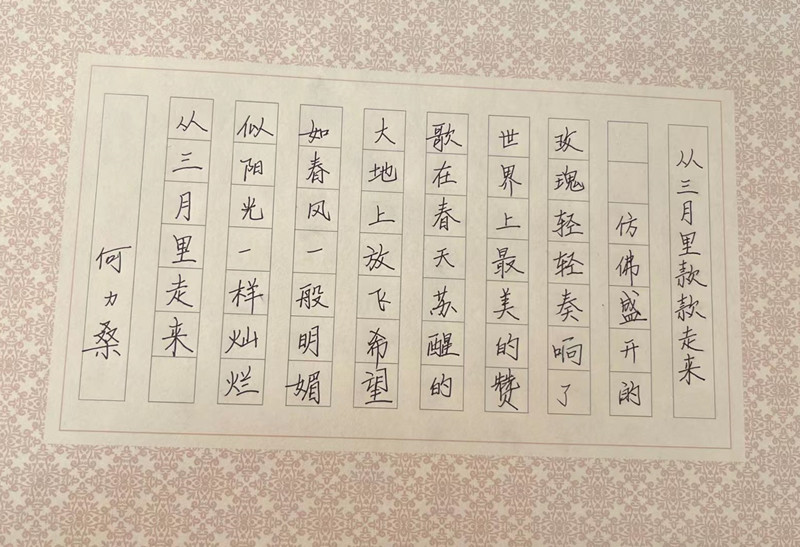 从三月里款款走来
仿佛盛开的
玫瑰轻轻奏响了
世界上最美的赞
歌在春天苏醒的
大地上放飞希望
如春风一般明媚
似阳光一样灿烂
从三月里走来
何力桑